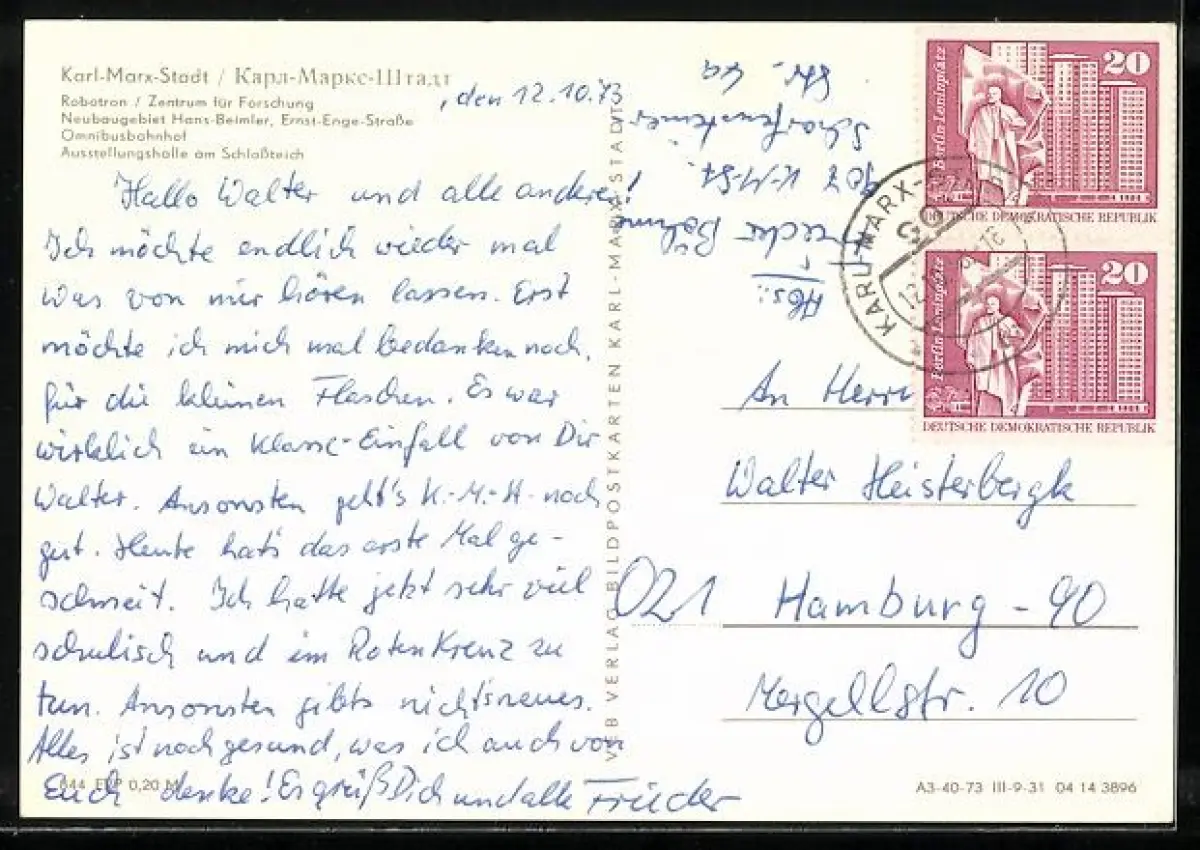 Karl-Marx-Stadt / Карл-Маркс-Штадт
Robotron / Zentrum für Forschung
Neubaugebiet Hans-Beimler, Ernst-Enge-Straße
Omnibusbahnhof
Ausstellungshalle am Schloßteich
, den 12.10.73
Hallo Walter und alle anderen!
Ich möchte endlich wieder mal
was von mir hören lassen. Erst
möchte ich mich mal bedanken noch,
für die kleinen Flaschen. Es war
wirklich ein Klasse-Einfall von Dir
Walter. Ansonsten geht's K.-M.-H. noch
gut. Heute hat's das erste Mal ge-
schneit. Ich hatte jetzt sehr viel
schulisch und im Roten Kreuz zu
tun. Ansonsten gibts nichts neues.
Alles ist noch gesund, was ich auch von
Euch denke! Es grüßt Dich und alle Frieder
644 EVP 0,20 M
VEB VERLAG BILDPOSTKARTEN KARL-MARX-STADT
Abs.:
Frieder Böhme
907 K-M-St.
Scharfensteiner
Str. 4a
Berlin-Leninplatz
20
DEUTSCHE DEMOKRATISCHE REPUBLIK
Berlin-Leninplatz
20
DEUTSCHE DEMOKRATISCHE REPUBLIK
KARL-MARX-
An Herrn
Walter Heisterbergk
021 Hamburg-90
Mergellstr. 10
A3-40-73 III-9-31 04 14 3896